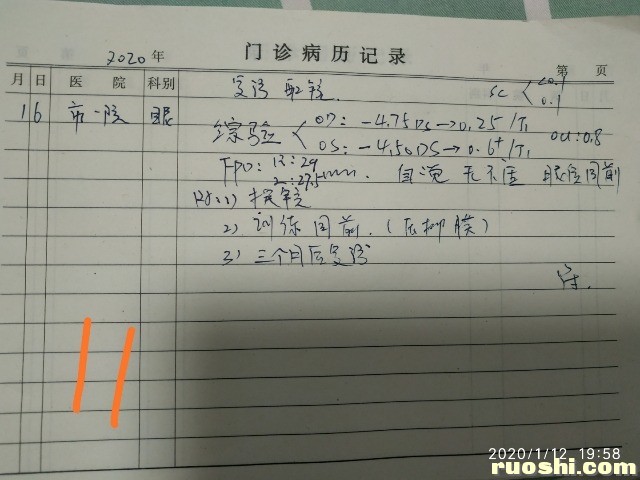 2020年 门诊病历记录 第 页
月 日 医 院 科别 复诊 取镜. sc <0.1 0.1
1 6 市一院 眼
综验 OD: -4.75DS→0.25/T1
OS: -4.50DS→0.6+/T1 OU:0.8
FPD: 自觉无不适 眼位同前
1) 换镜
2) 训练同前.(压抑膜)
3) 三个月后复诊
2020/1/12 19:58
ruoshi.com